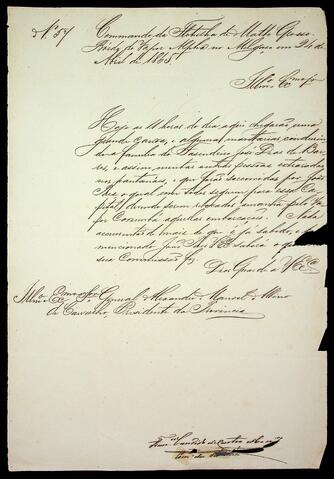 Nº 57
Commando da Flotilha de Matto Grosso
Bordo do Vapor Alpha no Melgaço em 24 de
Abril de 1865.
Illmo Exmo Sr
Hoje as 11 horas do dia aqui chegarão uma
grande canoa, e algumas montarias conduzin-
do a familia do Fasendeiro José Dias de Bar-
ros, e assim mais outras pessoas extraviadas
nos pantanaes, e que forão soccorridas por João
o qual com todos seguem para essa Ca-
pital; devendo ser rebocados amanhã pelo Va-
por Corumbá aquellas embarcações. Nada
accrescentei de mais do que é já sabido, e do
mencionado João V. Exª saberá o que
sua Commissão fez.
Deos Guarde a V. Exª
Illmo Exmo Sr General Alexandre Manoel Albino
de Carvalho, Presidente da Provincia
Candido de Castro